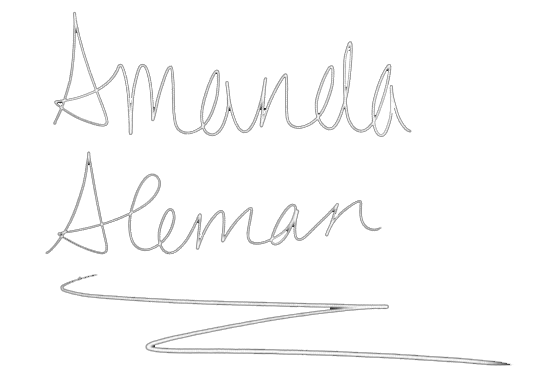 Amanda
Aleman